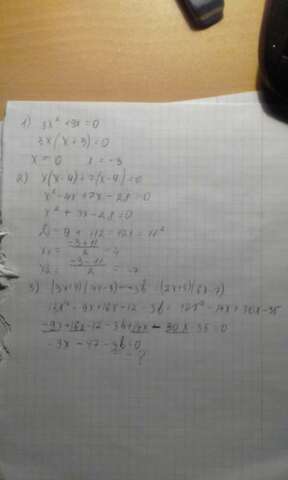 1) 3x² + 9x = 0
3x(x+3) = 0
x = 0 x = -3
2) x(x-4)+7(x-4)=0
x² - 4x + 7x - 28 = 0
x² + 3x - 28 = 0
D = 9 + 112 = 121 = 11²
x₁ = (-3+11)/2 = 4
x₂ = (-3-11)/2 = -7
3) (3x+4)(4x-3) - 36 = (2x+5)(6x-7)
12x² - 9x + 16x - 12 - 36 = 12x² - 14x + 30x - 35
-9x + 16x - 12 - 36 + 14x - 30x - 35 = 0
-3x - 47 - 36 = 0
?